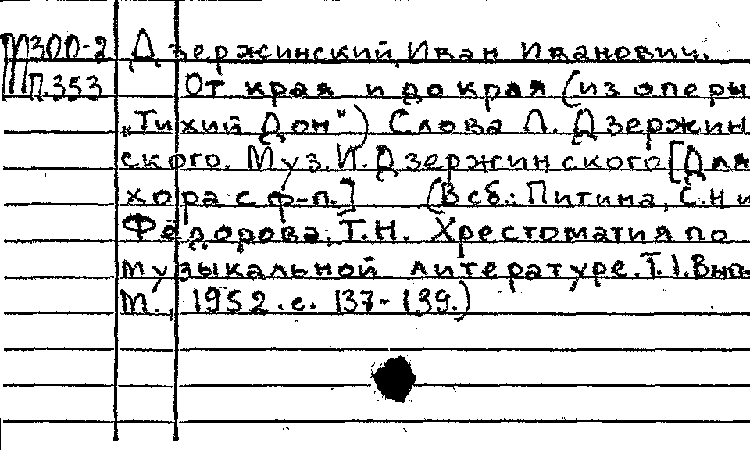 М300-2 Дзержинский, Иван Иванович.
П.353 От края и до края (из оперы
"Тихий Дон") Слова Л. Дзержин
ского. Муз. И. Дзержинского [Для
хора с ф-п.] (В сб.: Питина, С.Н и
Фёдорова, Т.Н. Хрестоматия по
музыкальной литературе. Т.1. Вып
М., 1952. с. 137-139.)